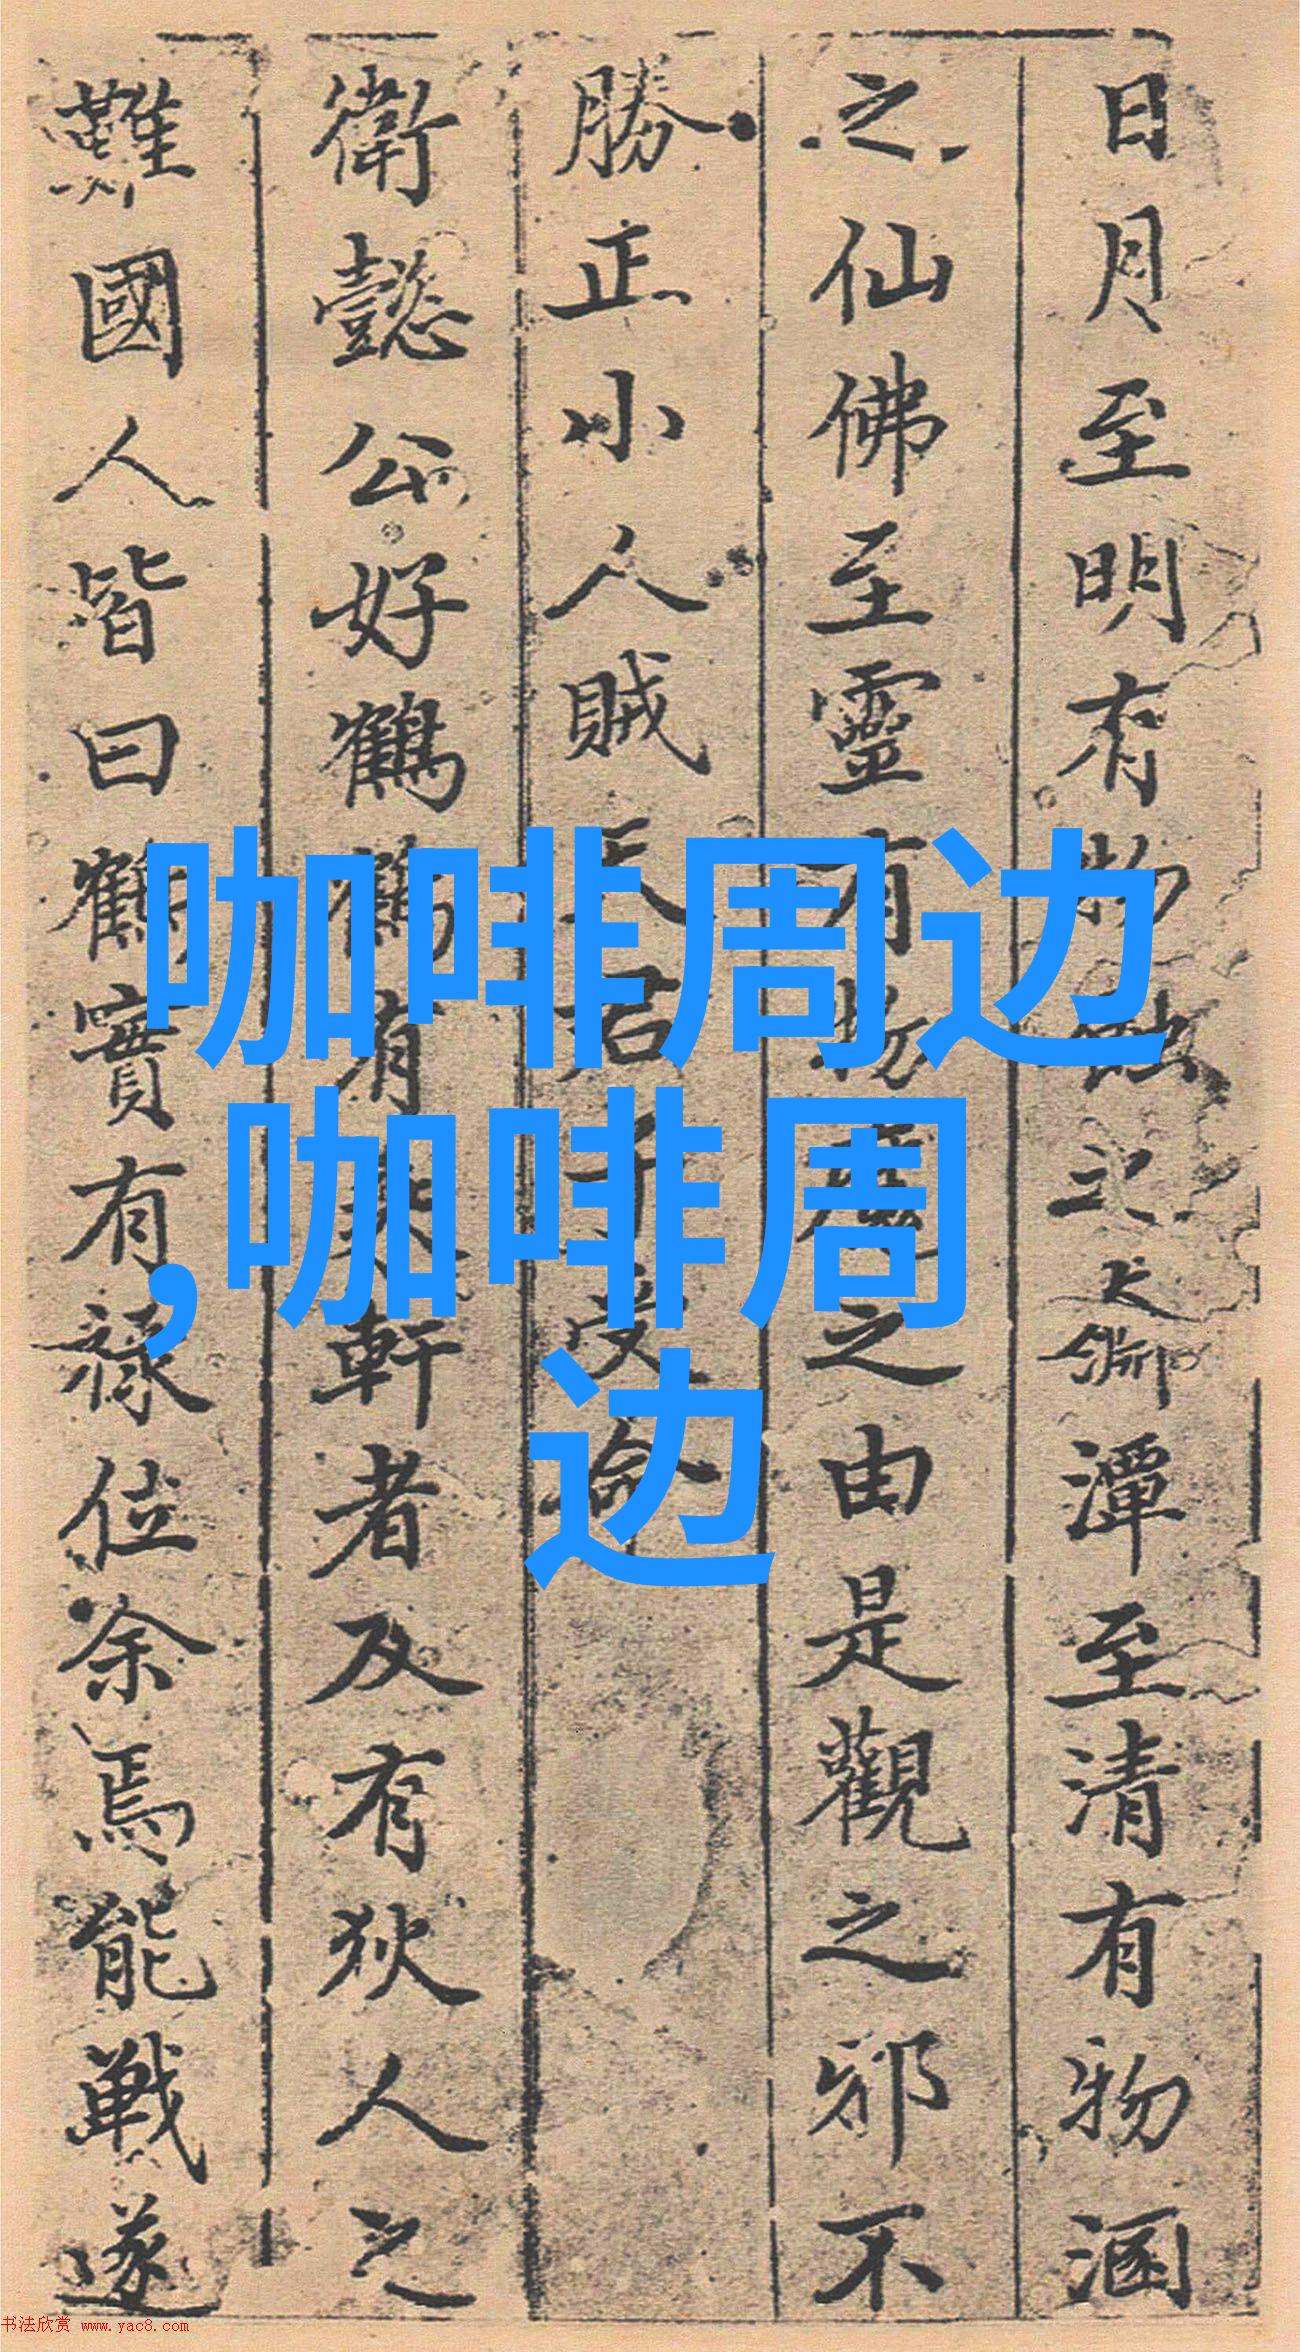 日月至明有物蝕之大㴾潭至清有物涵
之仙佛至靈有物魔之由是觀之邪不
勝正小人賊正君子受命
衛懿公好鶴鶴有乘軒者及有狄人之
難國人皆曰鶴實有祿位余焉能戰遂
咖啡周边
,咖啡周
边
书法欣赏 www.yac8.com